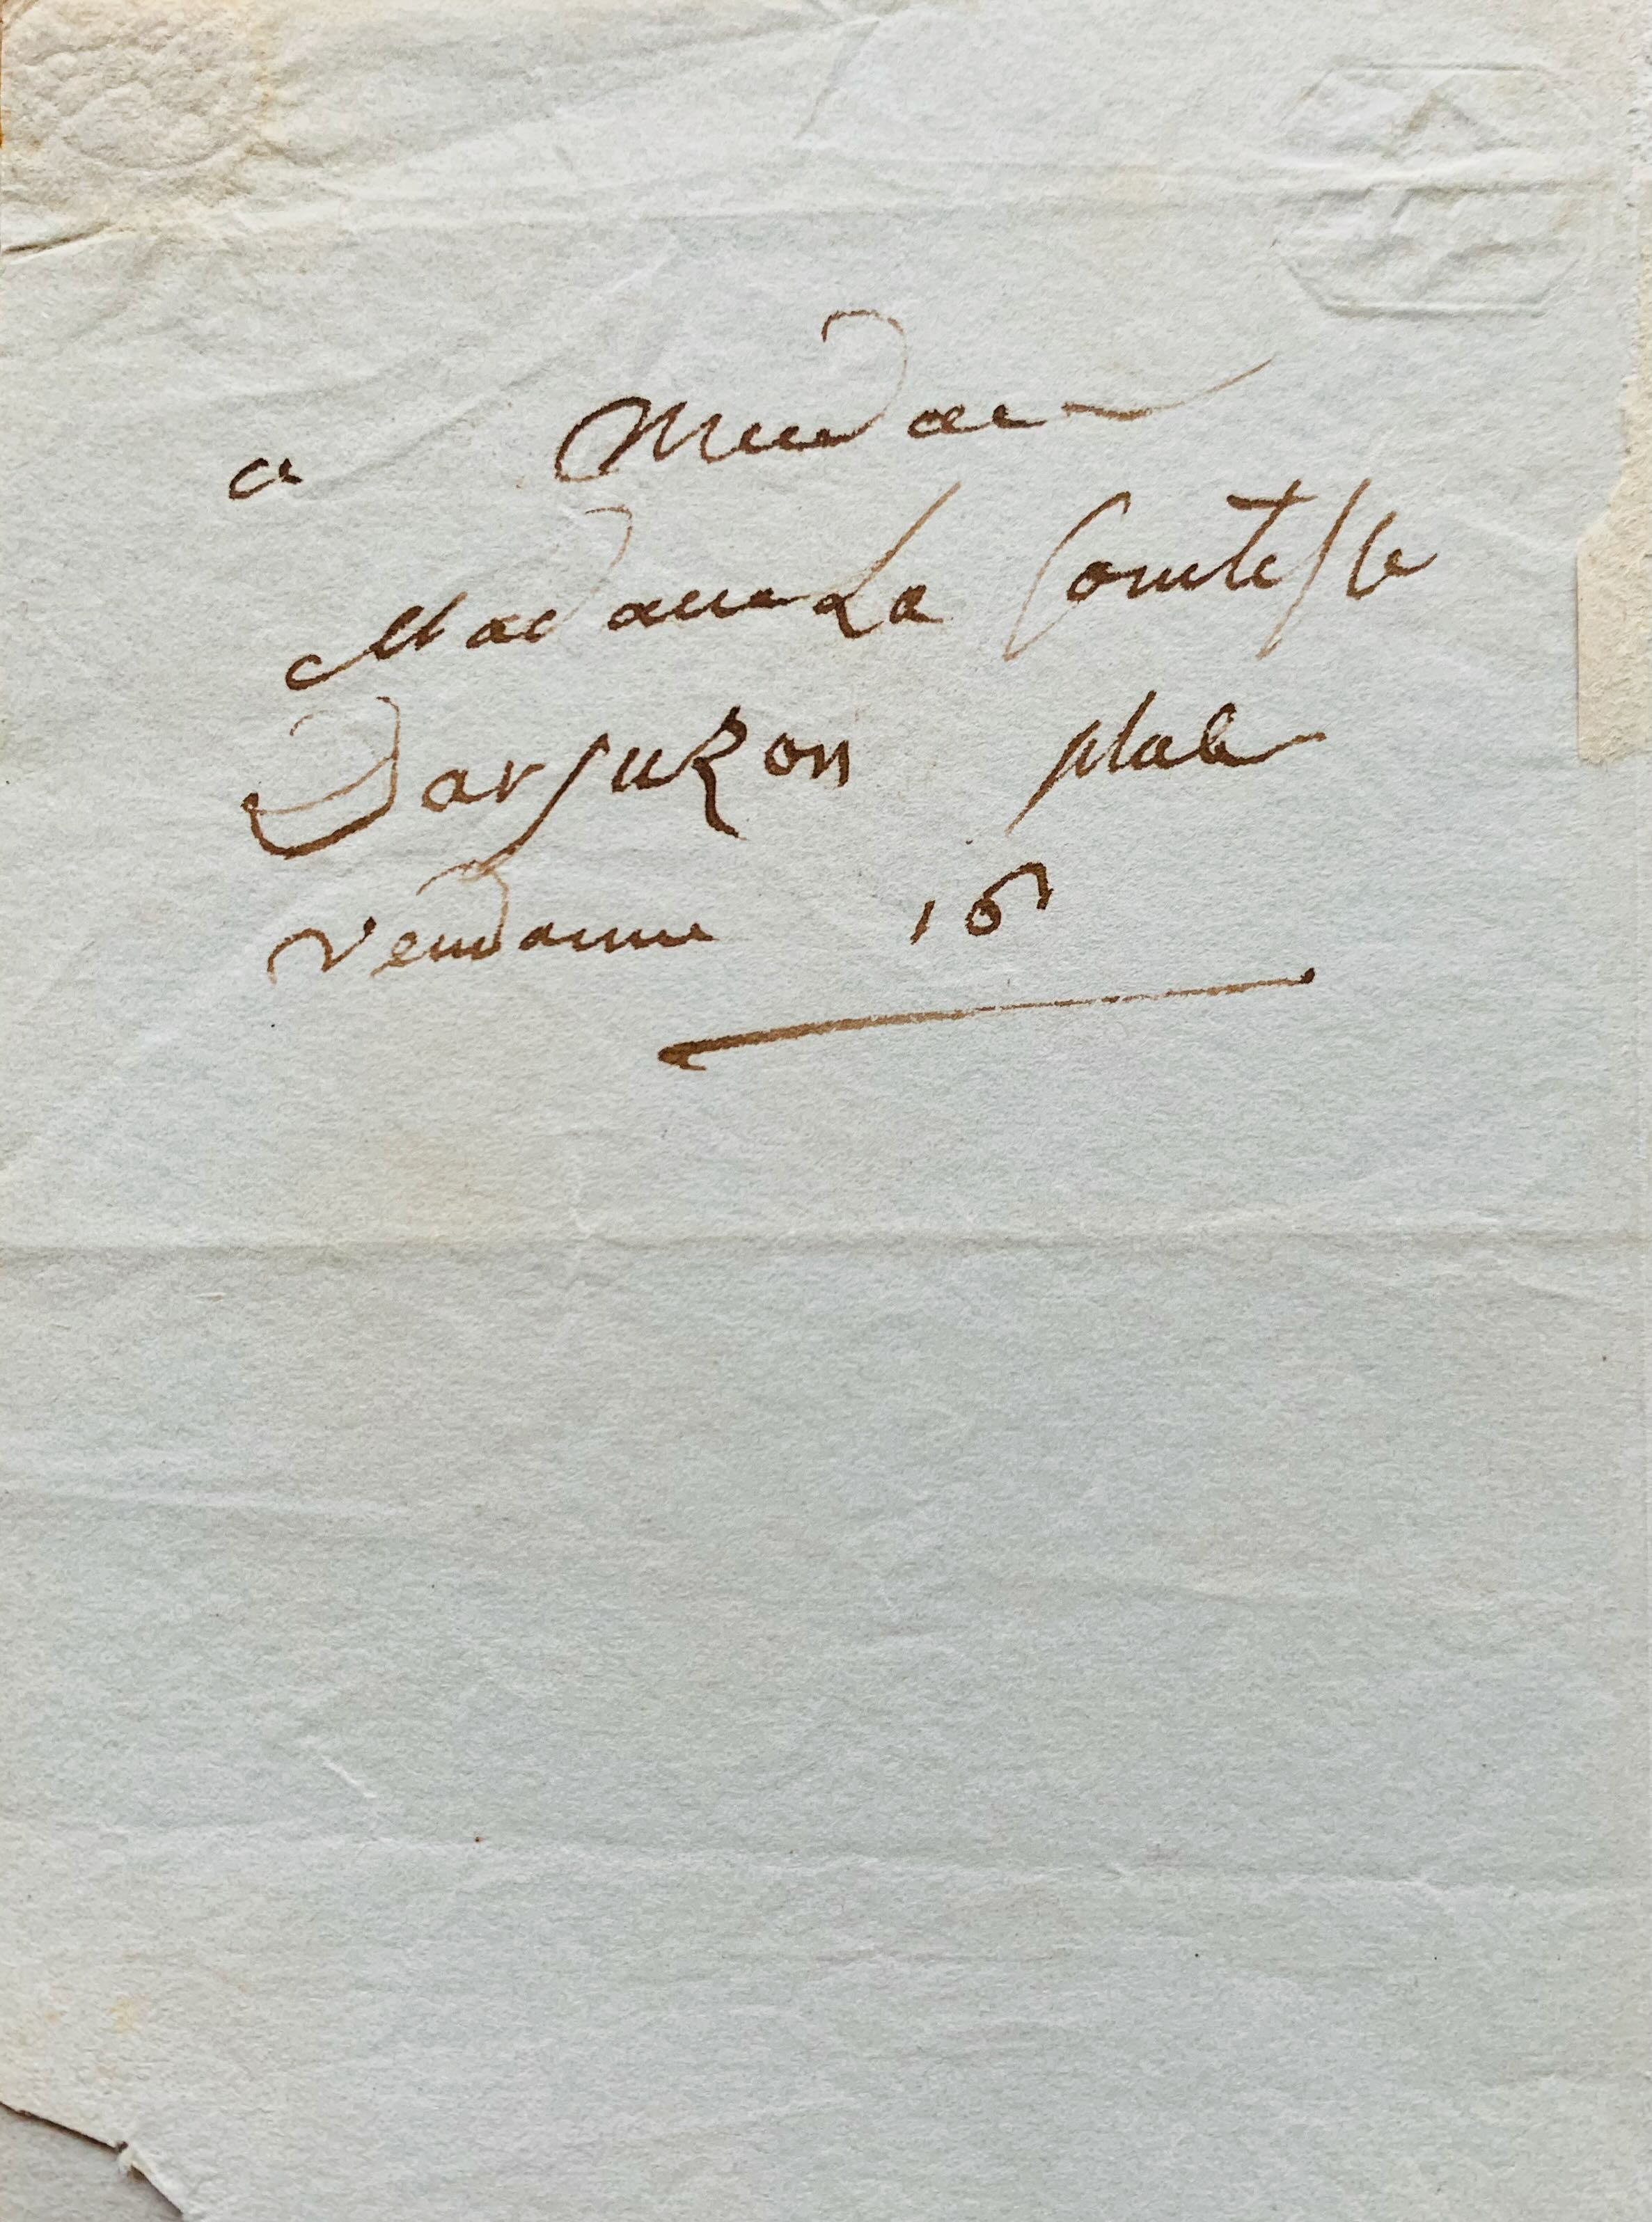 a Madame
Madame La Comtesse
Darjuzon place
Vendome 16